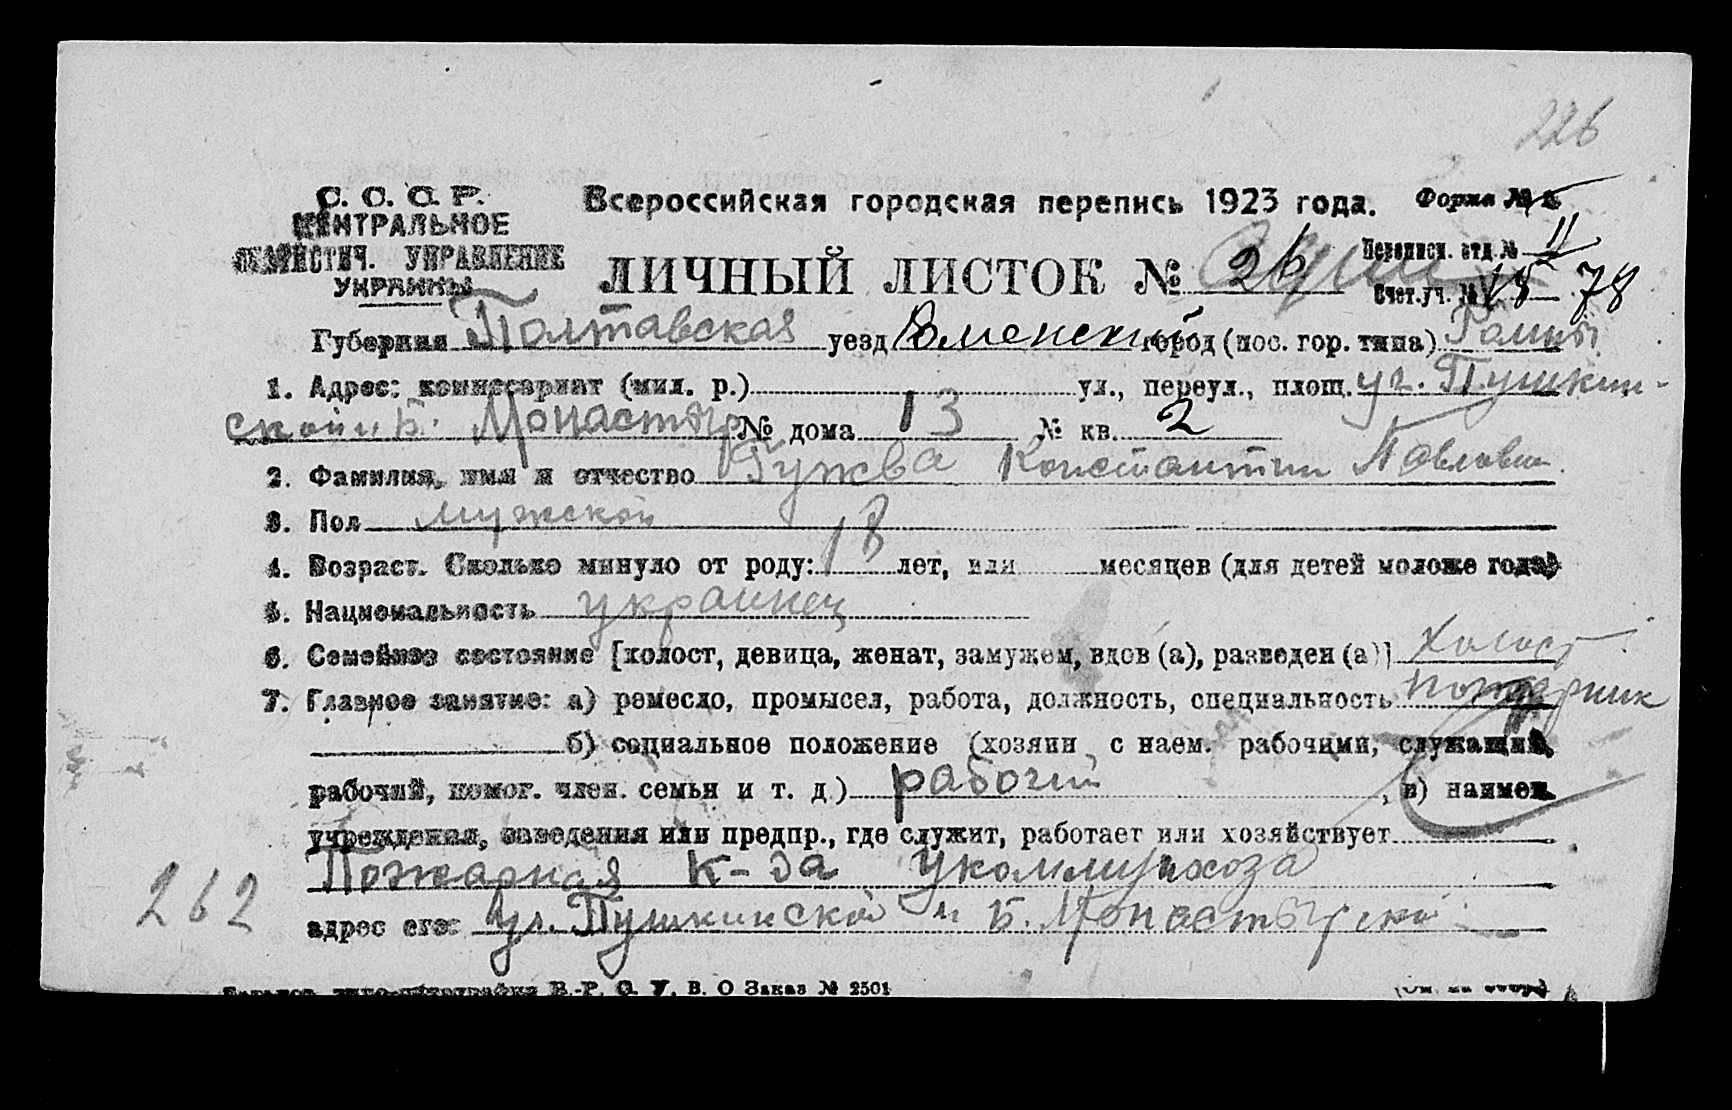 226
С. С. С. Р.
ЦЕНТРАЛЬНОЕ
СТАТИСТИЧ. УПРАВЛЕНИЕ
УКРАИНЫ
Всероссийская городская перепись 1923 года. Форма №
ЛИЧНЫЙ ЛИСТОК № 26
Переписн. отд. № 11
Счет. уч. № 15 78
Губерния Полтавская уезд Роменский город (пос. гор. типа) Ромны
1. Адрес: комиссариат (мил. р.) ул., переул., площ. ул. Пушкин-
ской и Б. Монастыр № дома 13 № кв. 2
2. Фамилия, имя и отчество Гужва Константин Павлович
3. Пол мужской
4. Возраст. Сколько минуло от роду: 18 лет, или месяцев (для детей моложе года)
5. Национальность украинец
6. Семейное состояние [холост, девица, женат, замужем, вдов (а), разведен (а)] холост
7. Главное занятие: а) ремесло, промысел, работа, должность, специальность пожарник
б) социальное положение (хозяин с наем. рабочими, служащий,
рабочий, помог. член. семьи и т. д.) рабочий, в) наимен.
учреждения, заведения или предпр., где служит, работает или хозяйствует
Пожарная К-да Укоммунхоза
262
адрес его: ул. Пушкинской и Б. Монастырской
В.-Р. С. У. В. О Заказ № 2501